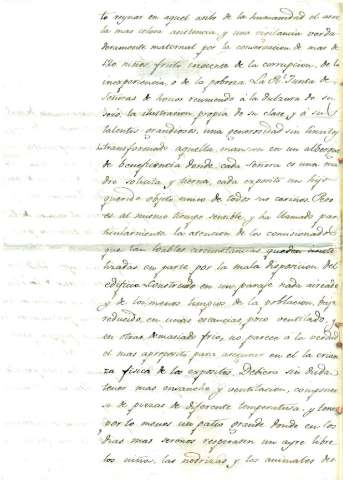 to reynar en aquel asilo de la humanidad el aseo
la mas celosa asistencia, y una vigilancia verda-
deramente maternal por la conservacion de mas de
niños, fruto inocente de la corrupcion, de la
inexperiencia, o de la pobreza. La Rl. Junta de
Señoras de honor reuniendo à la dulzura de su
sexo, la ilustracion propia de su clase, y à sus
talentos grandiosos, una generosidad sin limites
transformado aquella mansion en un albergue
de beneficiencia donde cada Señora es una ma-
dre solicita, y tierna, cada exposito un hijo
querido objeto unico de todos sus cariños. Pero
es al mismo tiempo sensible, y ha llamado par-
ticularmente la atencion de los comisionados
que tan loables circunstancias queden neutra-
lizadas en parte por la mala disposicion del
edificio. Construido en un parage nada aireado
y de los menos limpios de la poblacion,
reducido, en unas estancias poco ventilado, y
en otras demasiado frio, no parece a la verdad
el mas aproposito para asegurar en el la crian-
za fisica de los expositos. Debiera sin duda
tener mas ensanche y ventilacion, componer-
se de piezas de diferente temperatura, y tener
por lo menos un patio grande donde en los
dias mas serenos respirasen un ayre libre
los niños, las nodrizas y los animales des-